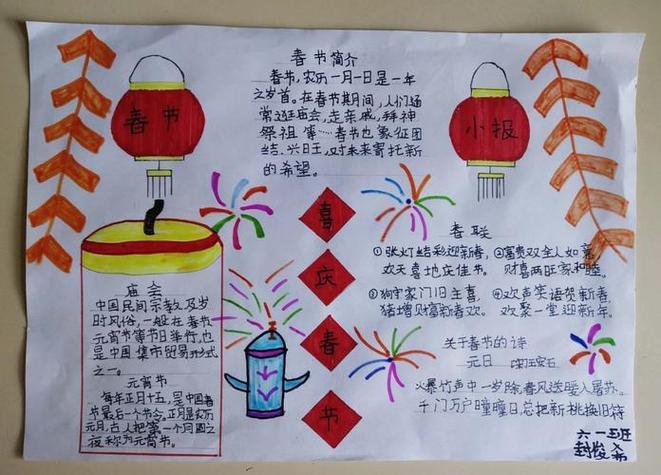 春节
小报
春节简介
春节,农历一月一日是一年
之岁首。在春节期间,人们场
常逛庙会,走亲戚,拜神
祭祖等……春节也象征团
结、兴旺,对未来寄托新
的希望。
喜
庆
春
节
庙会
中国民间宗教及岁
时风俗,一般在春节
元宵节等节日举行,也
是中国集市贸易形式
之一。
元宵节
每年正月十五,是中国春
节最后一个节令,正月是农历
元月,古人把第一个月圆之
夜称为元宵节。
春联
①张灯结彩迎新春,
欢天喜地庆佳节。
②富贵双全人如意
财喜两旺家和睦。
③狗守家门旧主喜,
猪增财富新春欢。
④欢声笑语贺新春
欢聚一堂迎新年。
关于春节的诗
元日 宋王安石
火暴竹声中一岁除,春风送暖入屠苏。
千门万户曈曈日,总把新桃换旧符
六一班